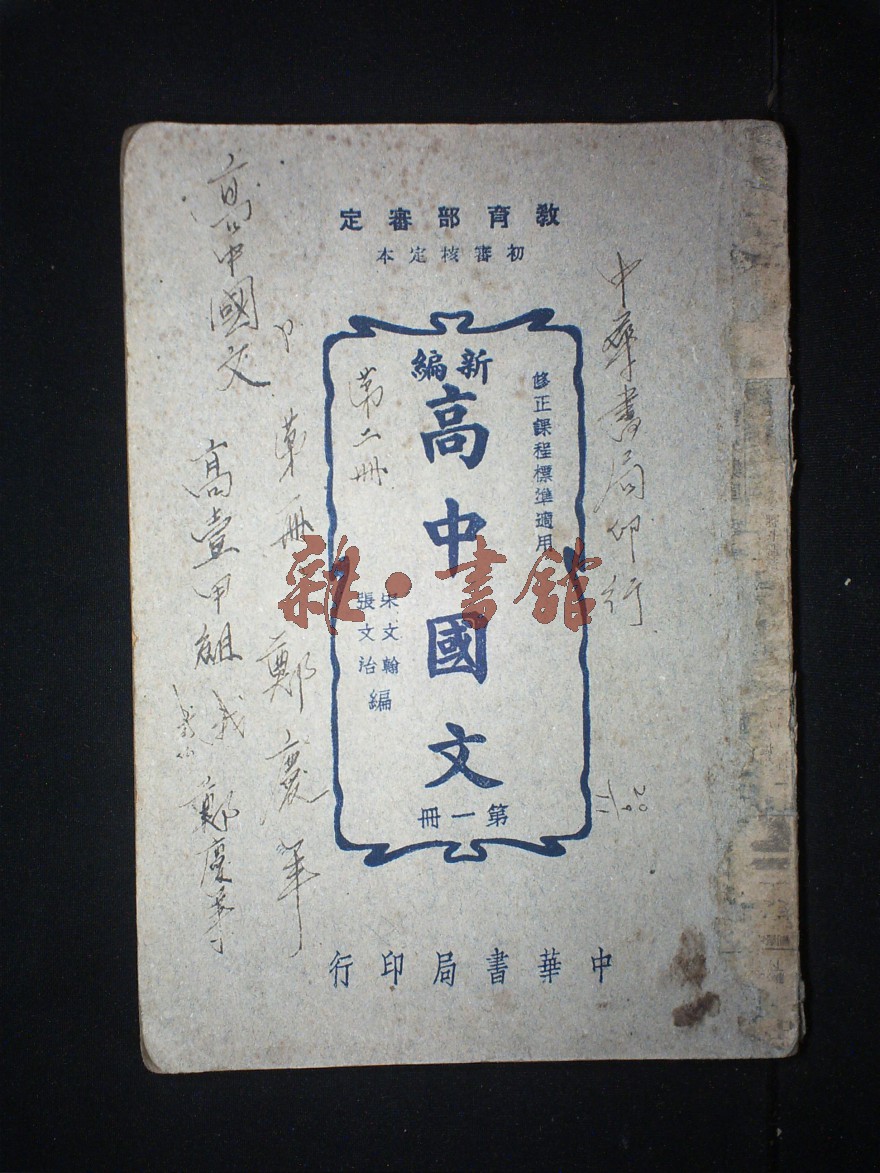 教育部審定
初審核定本
修正課程標準適用
新編
高中國文
第一冊
宋文翰
張文治
編
中華書局印行
中華書局印行
第二冊
第一冊
鄭慶
高中國文
高壹甲組
鄭慶
雜·書館